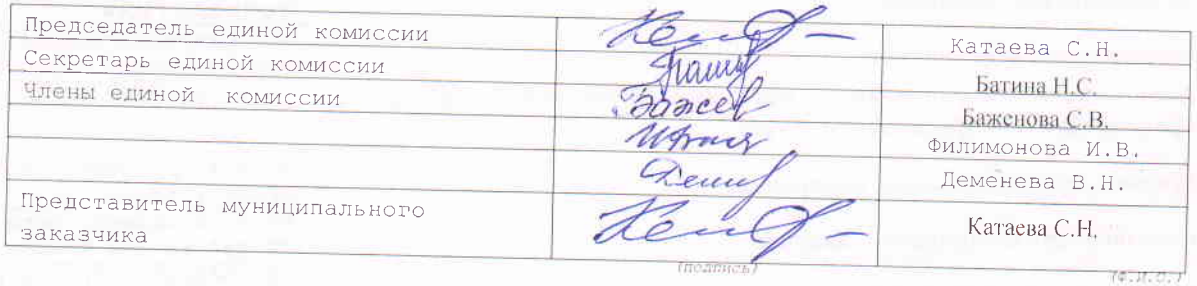 Председатель единой комиссии Катаева С.Н.
Секретарь единой комиссии Батина Н.С.
Члены единой комиссии Баженова С.В.
Филимонова И.В.
Деменева В.Н.
Представитель муниципального
заказчика Катаева С.Н.
(подпись) (Ф.И.О.)